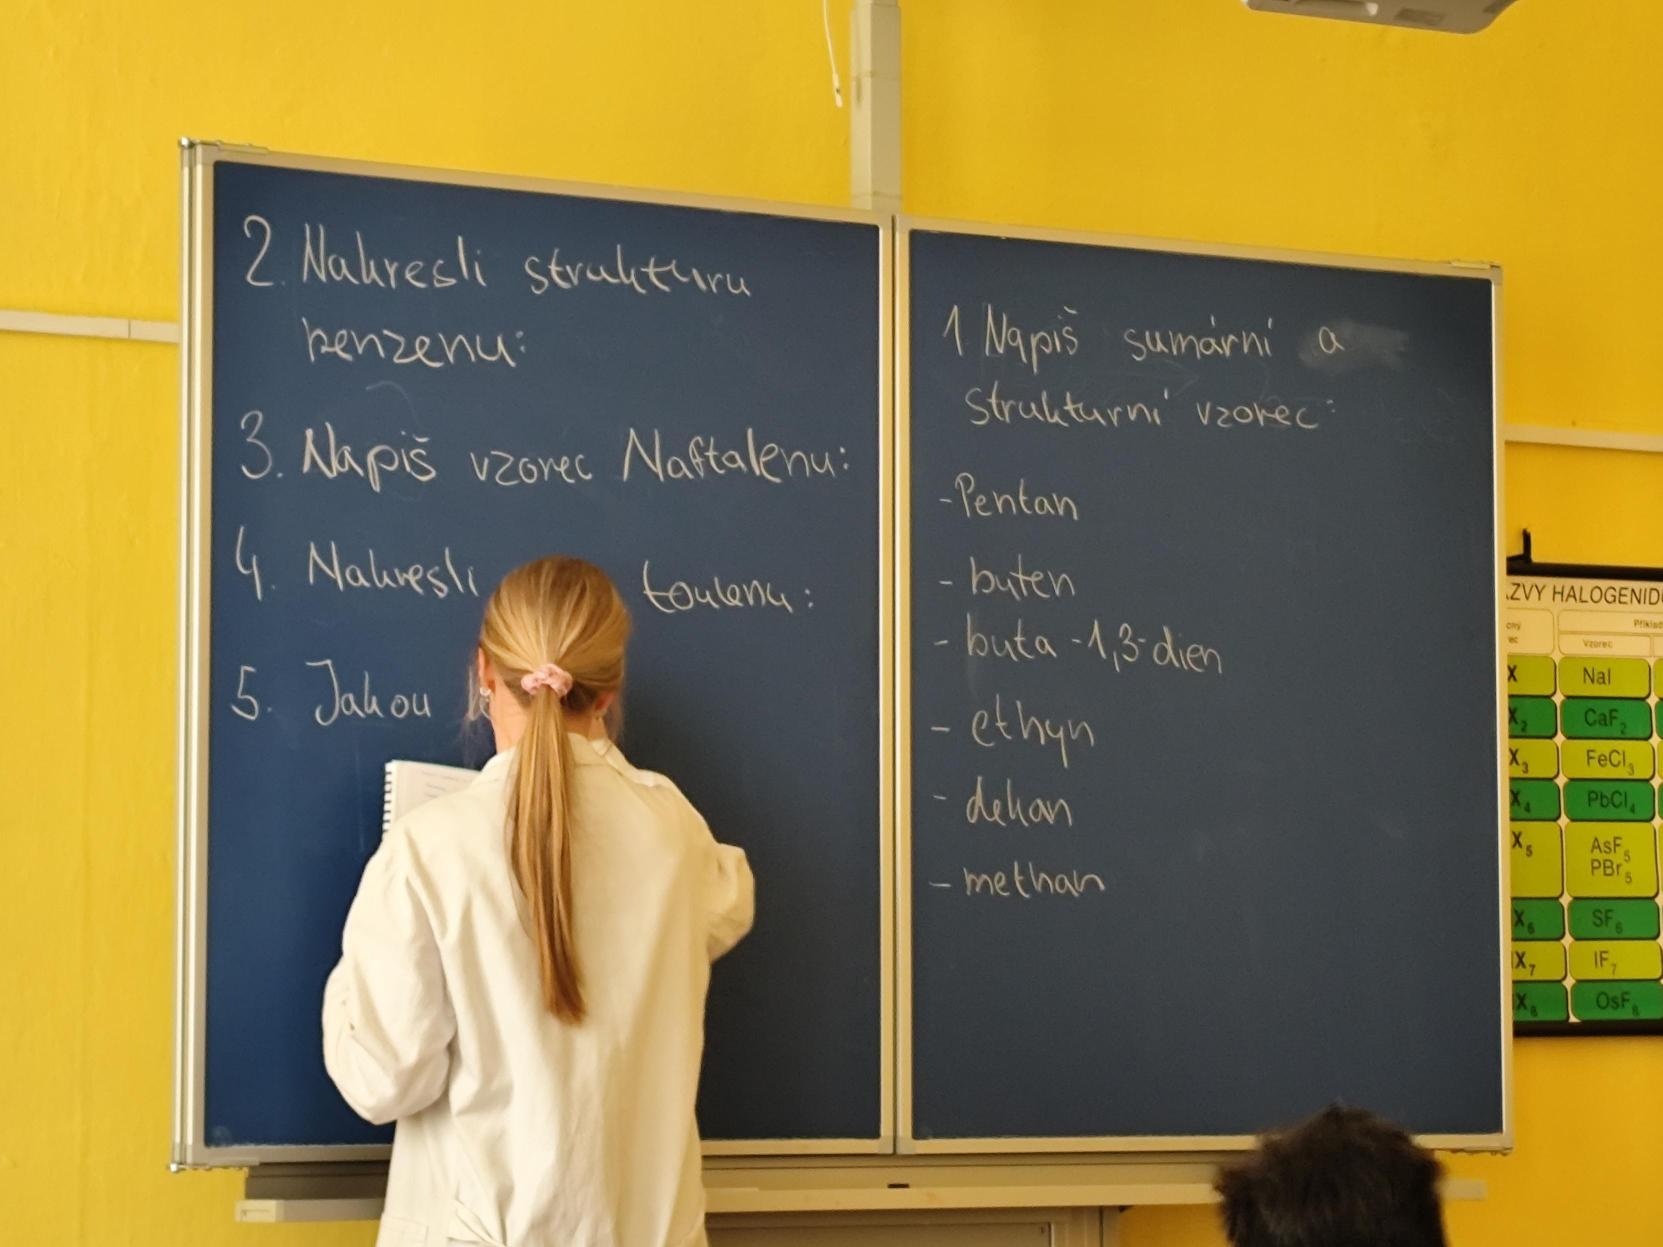 2. Nakresli strukturu
benzenu:
3. Napiš vzorec Naftalenu:
4. Nakresli toulenu:
5. Jakou
1 Napiš sumární a
strukturní vzorec:
-Pentan
- buten
- buta -1,3-dien
- ethyn
- dekan
- methan
ZVY HALOGENID
Vzorec
X NaI
X₂ CaF₂
X₃ FeCl₃
X₄ PbCl₄
X₅ AsF₅
PBr₅
X₆ SF₆
X₇ IF₇
X₈ OsF₈